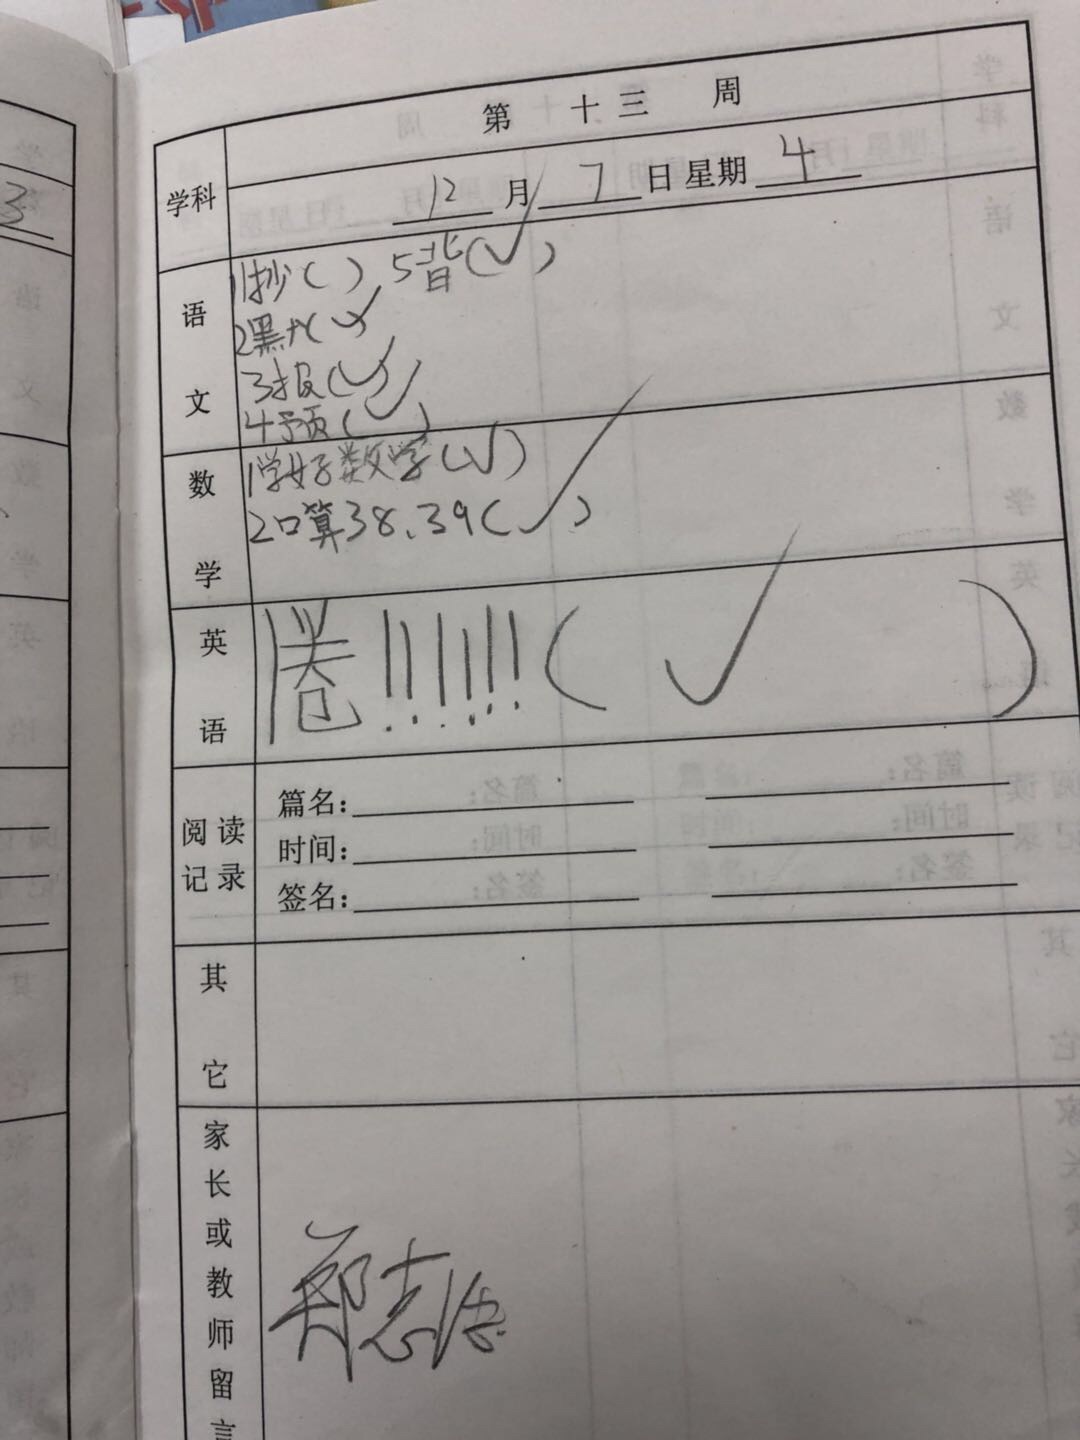 第 十三 周
学科
12月7日 星期4
语文
1抄( ) 5背(✓)
2黑(✓)
3报(✓)
4预(✓)
数学
1学好数学(✓)
2口算38、39(✓)
英语
卷!!!!!!(✓)
阅读记录
篇名:
时间:
签名:
其它
家长或教师留言
郑志
3